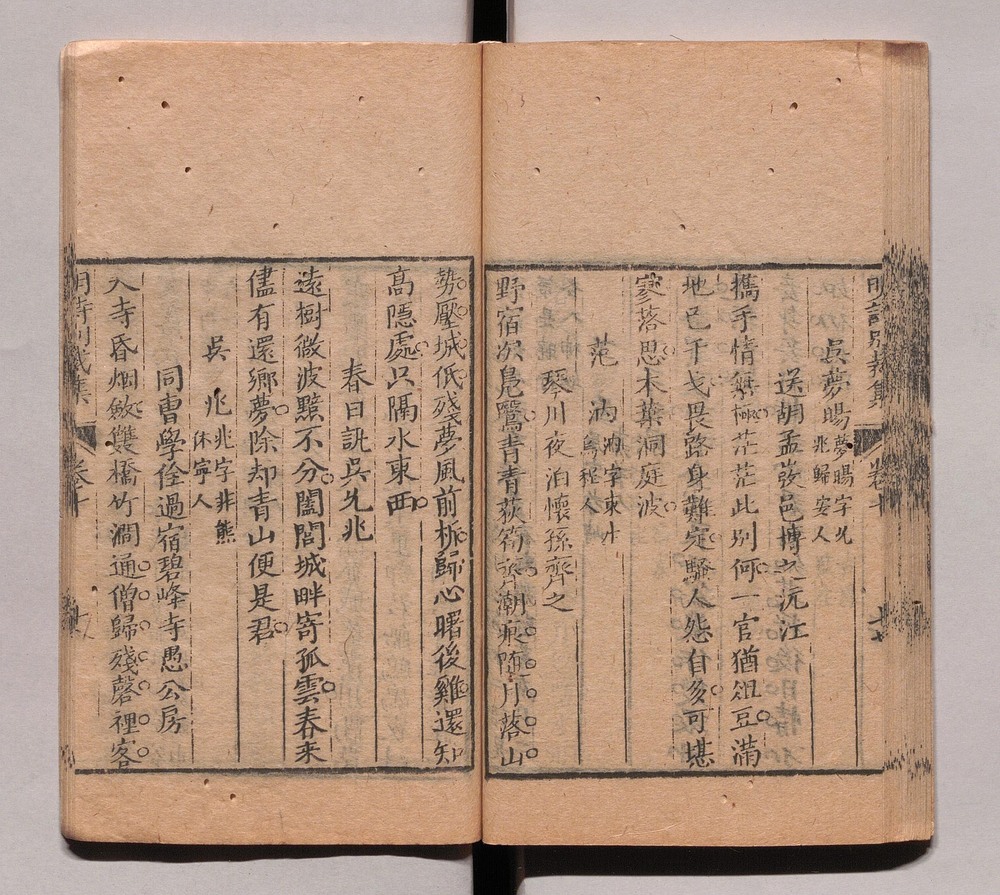 明詩別裁集 卷十
吳夢暘 夢暘字允兆歸安人
送胡孟弢邑博之沅江
攜手情無極茫茫此別何一官猶俎豆滿
地已干戈畏路身難定騷人怨自多可堪
寥落思木葉洞庭波
范汭 汭字東生烏程人
琴川夜泊懷孫齊之
野宿次鳧鷖青青荻筍齊潮痕隨月落山
勢壓城低殘夢風前柝歸心曙後雞還知
高隱處只隔水東西
春日訊吳允兆
遠樹微波黯不分闔閭城畔寄孤雲春來
儘有還鄉夢除却青山便是君
吳兆 兆字非熊休寧人
同曹學佺過宿碧峰寺愚公房
入寺昏烟斂雙橋竹澗通僧歸殘磬裡客
明詩別裁集 卷十